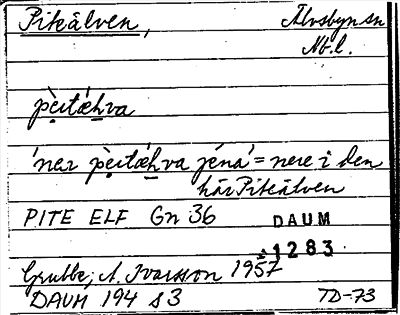 Piteälven, Älvsbyn sn
Nb.l.
pèitæ̀hva
'ner pèitæhva jénà' = nere i den
här Piteälven
PITE ELF Gn 36 DAUM
1283
Grubbe, A. Ivarsson 1957
DAUM 194 s3 TD-73